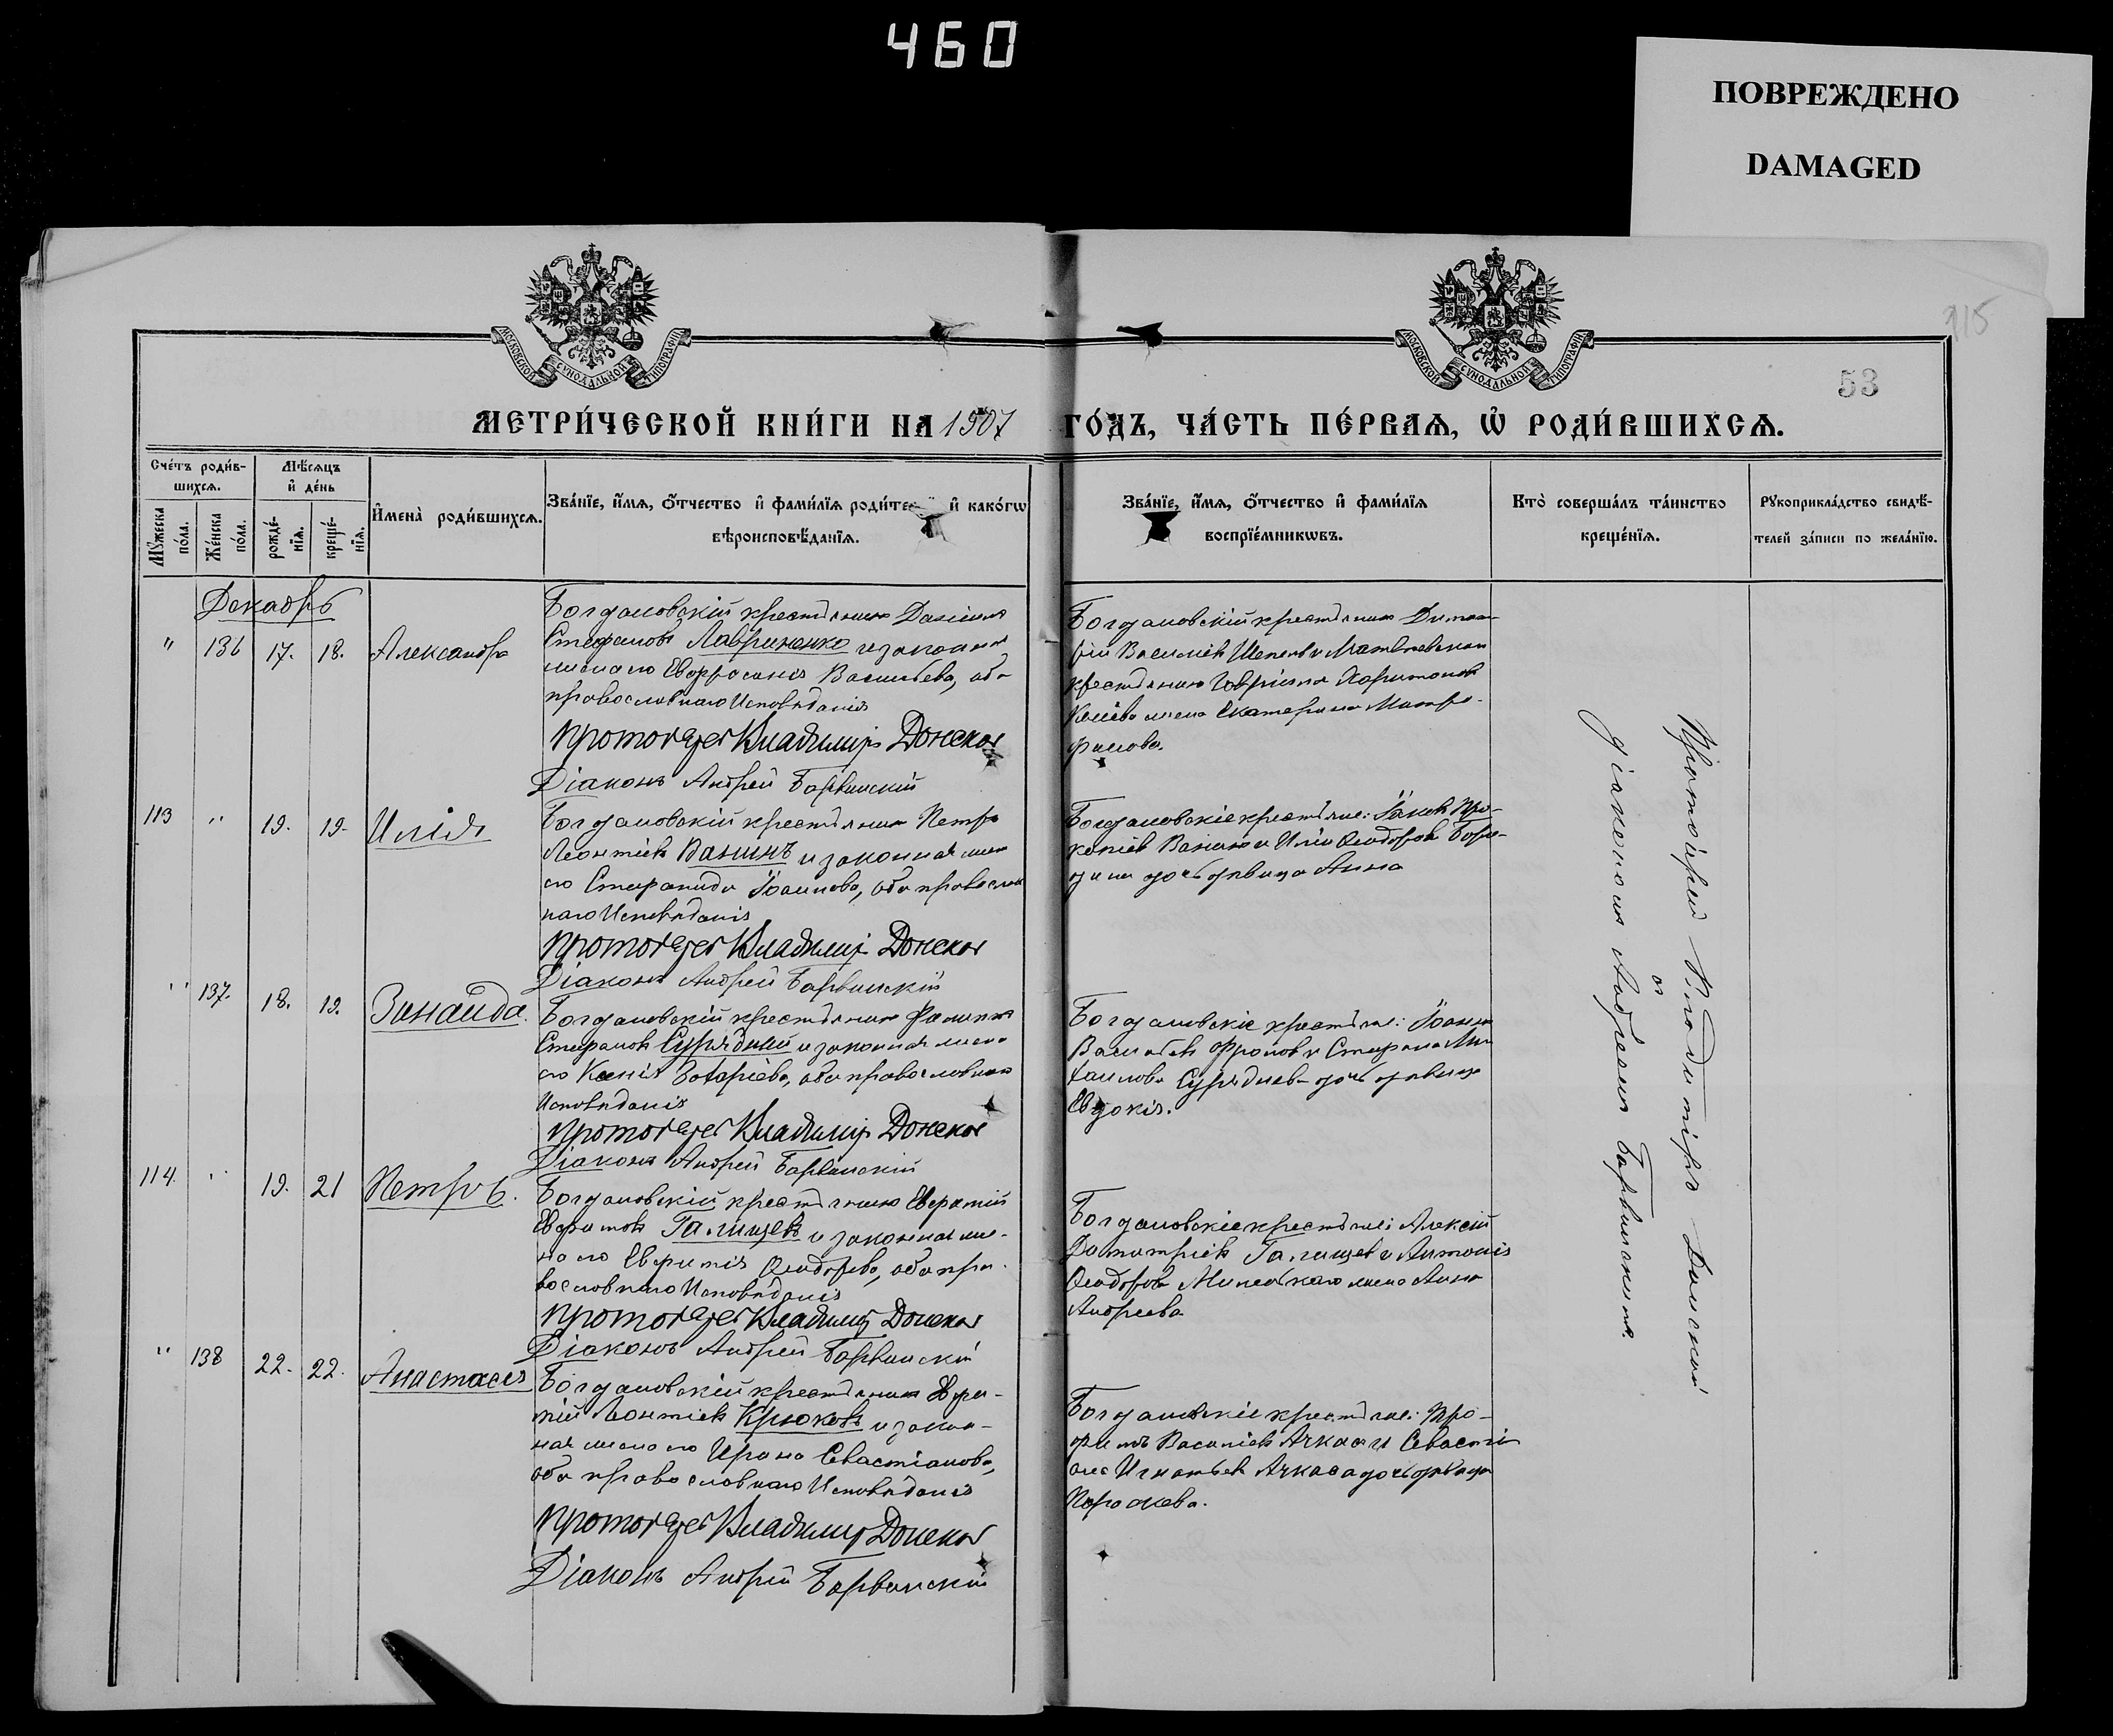 460
ПОВРЕЖДЕНО
DAMAGED
115
53
МОСКОВСКОЙ СѴНОДАЛЬНОЙ ТИПОГРАФІИ
МОСКОВСКОЙ СѴНОДАЛЬНОЙ ТИПОГРАФІИ
МЕТРИ́ЧЕСКОЙ КНИ́ГИ НА 1907 ГО́ДЪ, ЧА́СТЬ ПЕ́РВАЯ, Ѡ҆ РОДИ́ВШИХСѦ.
Сче́тъ роди́в-
шихсѧ.
Мꙋжеска по́ла.
Же́нска по́ла.
Мѣ́сѧцъ и҆ де́нь
рожде́-нїѧ.
креще́-нїѧ.
И҆мена̀ роди́вшихсѧ.
Зва́нїе, и҆́мѧ, ѻ҆́тчество и҆ фами́лїѧ роди́те и҆ како́гѡ
вѣроисповѣ́данїѧ.
Зва́нїе, и҆́мѧ, ѻ҆́тчество и҆ фами́лїѧ
воспрїе́мникѡвъ.
Кто̀ соверша́лъ та́инство
креще́нїѧ.
Рꙋкоприкла́дство свидѣ́-
телей за́писи по жела́нїю.
Декабрь
" 136 17. 18. Александра
Богдановскій крестьянинъ Даніилъ
Стефановъ Лавриненко и законная
жена его Евфросинія Васильева, оба
православнаго Исповѣданія
Протоіерей Владиміръ Донской
Діаконъ Андрей Барвинскій
Богдановскій крестьянинъ Димит-
рій Васильевъ и
крестьянина Гавріила Харитонова
жена Екатерина Митро-
фанова.
113 " 19. 19. Илія
Богдановскій крестьянинъ Петръ
Леонтіевъ Ванинъ и законная жена
его Стефанида Іоаннова, оба православ
наго Исповѣданія
Протоіерей Владиміръ Донской
Діаконъ Андрей Барвинскій
Богдановскіе крестьяне: Іаковъ Про-
копіевъ Ванинъ и Иліи Ѳеодорова Боро-
дина дочь дѣвица Анна
" 137. 18. 19. Зинаида.
Богдановскій крестьянинъ Филиппъ
Стефановъ Суряднѣй и законная жена
его Ксенія Зотарiева, оба православнаго
Исповѣданія
Протоіерей Владиміръ Донской
Діаконъ Андрей Барвинскій
Богдановскіе крестьяне: Іоаннъ
Васильевъ Фроловъ и Стефана Ми
хаилова Суряднева дочь дѣвица
Евдокія.
114. " 19. 21 Петръ.
Богдановскій крестьянинъ Евфимій
Евфимовъ Галищевъ и законная же-
на его Евфимія Ѳеодорова, оба пра-
вославнаго Исповѣданія
Протоіерей Владиміръ Донской
Діаконъ Андрей Барвинскій
Богдановскіе крестьяне: Алексій
Димитріевъ Галищевъ и Антонія
Ѳеодорова жена Анна
Андреева
" 138 22. 22. Анастасія
Богдановскій крестьянинъ Евфи-
мій Леонтіевъ Крюковъ и закон-
ная жена его Ирина Севастіанова,
оба православнаго Исповѣданія
Протоіерей Владиміръ Донской
Діаконъ Андрей Барвинскій
Богдановскіе крестьяне: Тро-
фимъ Васильевъ Ачкасъ и Севасті
ана Игнатьева Ачкаса дочь дѣвица
Параскева.
Протоіерей Владиміръ Донской
съ
діакономъ Андреемъ Барвинскимъ.